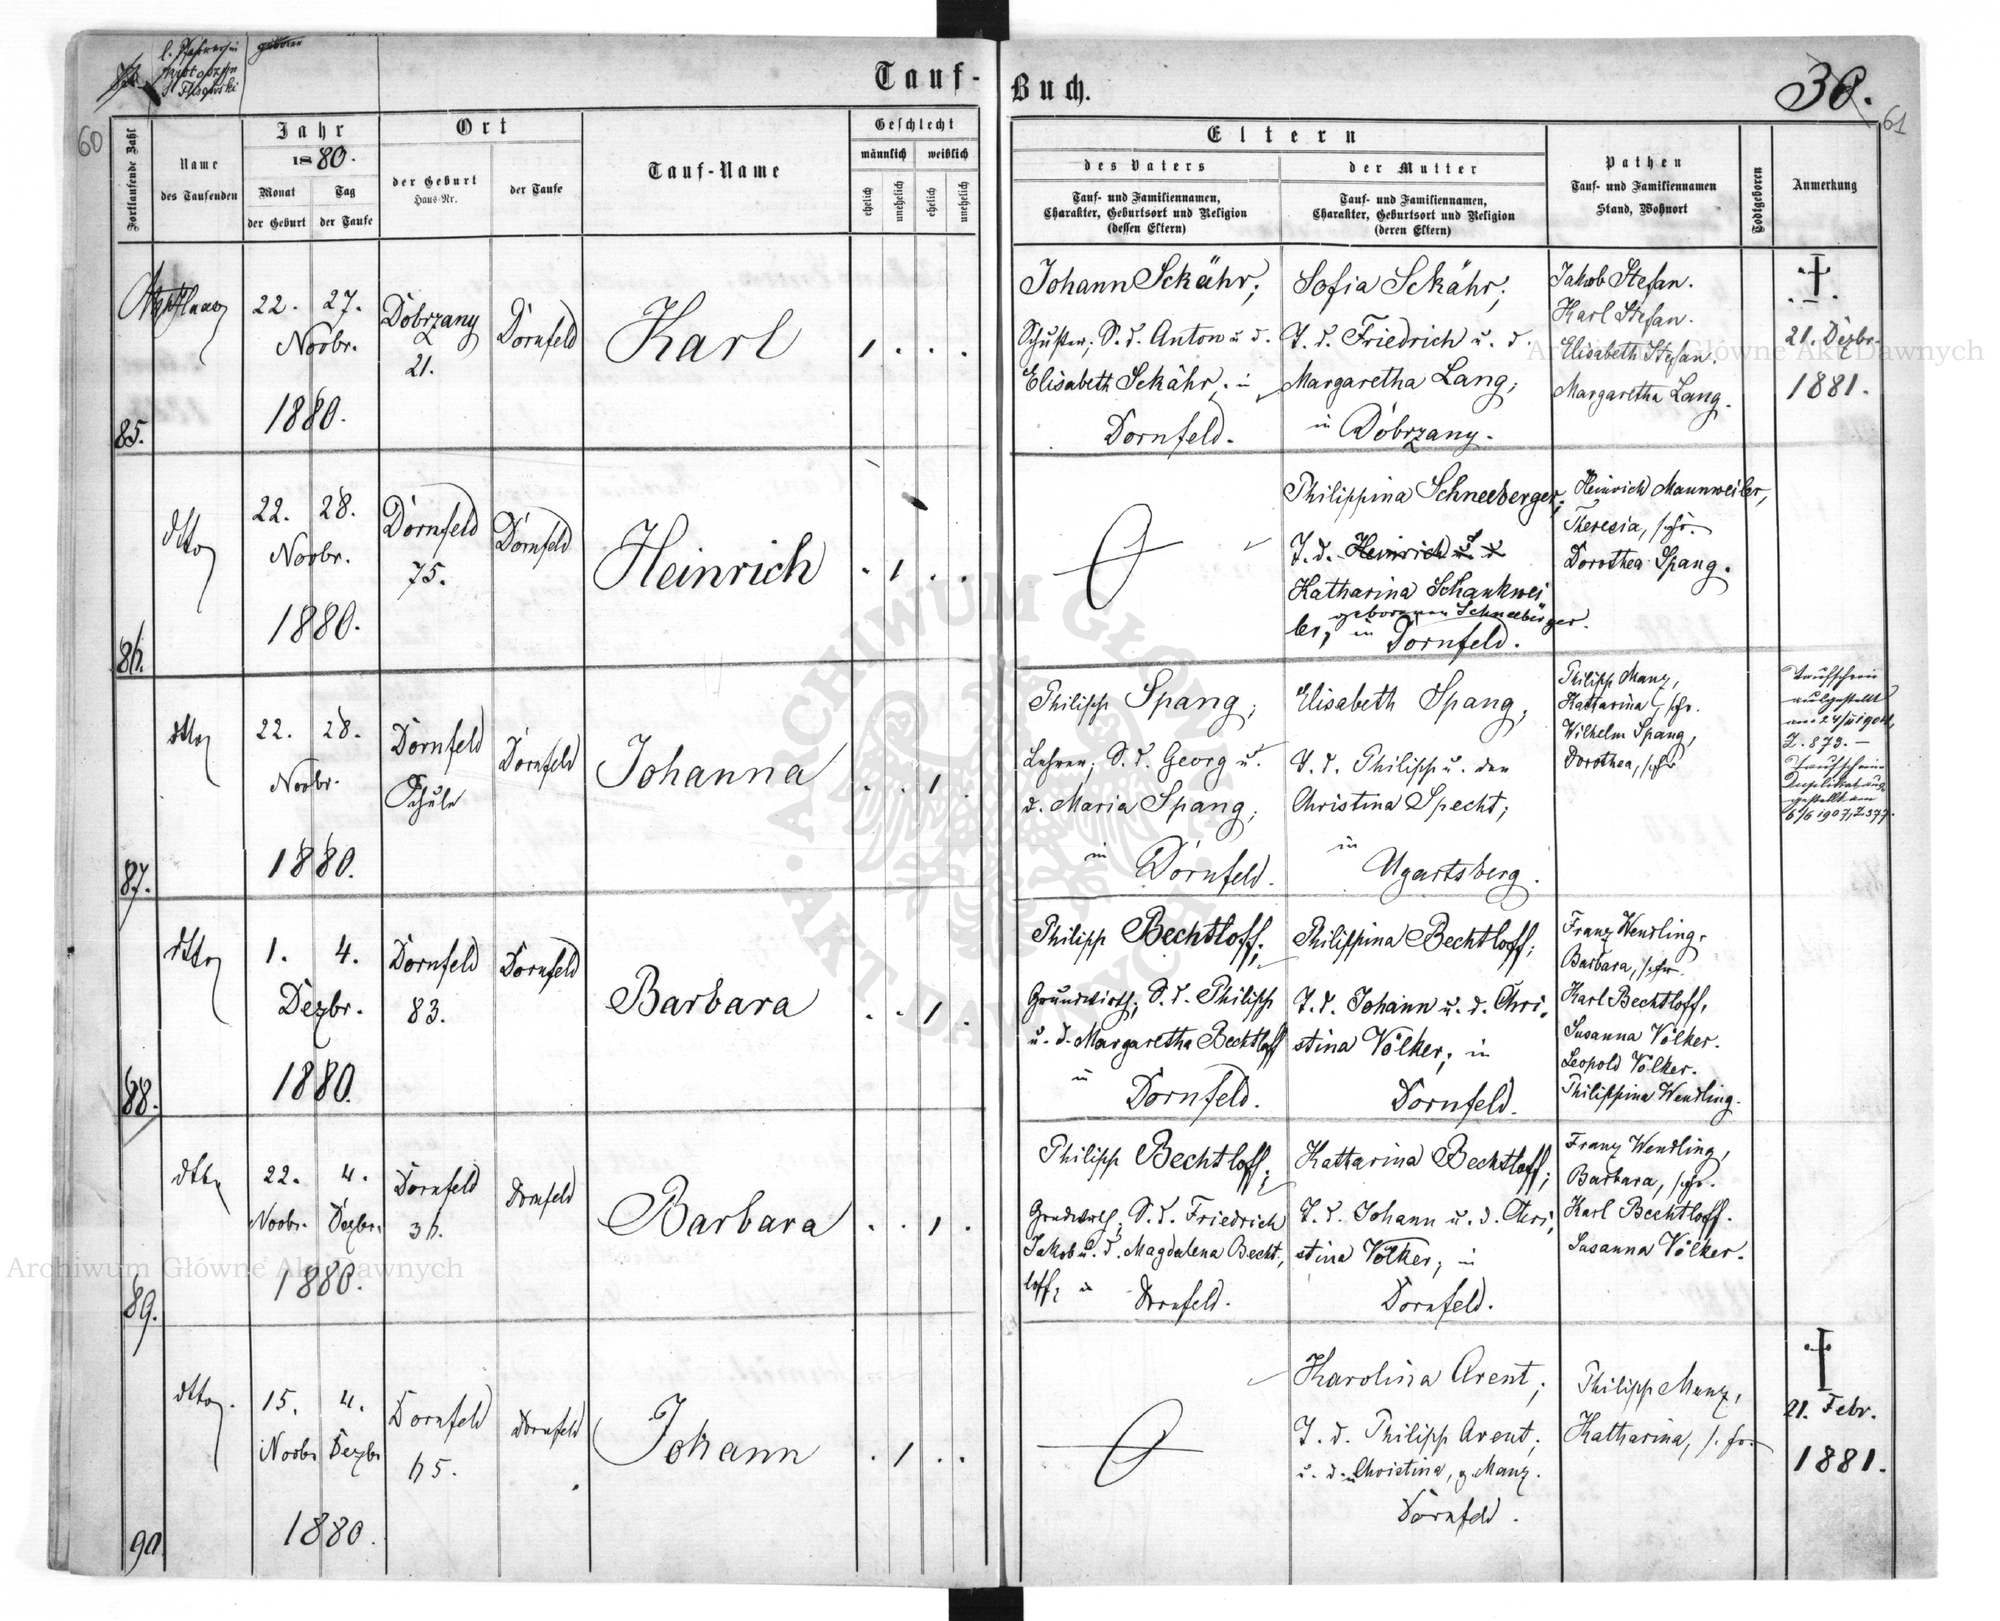 geboren
Tauf-
Buch.
30.
60
61
Fortlaufende Zahl
Name
des Taufenden
Jahr
1880.
Monat
der Geburt
Tag
der Taufe
Ort
der Geburt
Haus-Nr.
der Taufe
Tauf-Name
Geschlecht
männlich
weiblich
ehelich
unehelich
ehelich
unehelich
Eltern
des Vaters
Tauf- und Familiennamen,
Charakter, Geburtsort und Religion
(dessen Eltern)
der Mutter
Tauf- und Familiennamen,
Charakter, Geburtsort und Religion
(deren Eltern)
Pathen
Tauf- und Familiennamen
Stand, Wohnort
Todtgeboren
Anmerkung
85.
22. 27.
Novbr.
1880.
Dobrzany
21.
Dornfeld
Karl
Johann Schähr;
Schuster; S. d. Anton u d.
Elisabeth Schähr, in
Dornfeld.
Sofia Schähr;
T. d. Friedrich u. d.
Margaretha Lang;
in Dobrzany.
Jakob Stefan.
Karl Stefan.
Elisabeth Stefan.
Margaretha Lang.
21. Dezbr.
1881.
86.
dtto
22. 28.
Novbr.
1880.
Dornfeld
75.
Dornfeld
Heinrich
Philippina Schneeberger;
T. d. Heinrich u
Katharina Schankwei
geborenen Schneeberger.
ler, in Dornfeld.
Heinrich Mannweiler,
Theresia, s. Fr.
Dorothea Spang.
87.
dtto
22. 28.
Novbr.
1880.
Dornfeld
Schule
Dornfeld
Johanna
Philipp Spang;
Lehrer; S. d. Georg u.
d. Maria Spang;
in Dornfeld.
Elisabeth Spang;
T. d. Philipp u. der
Christina Specht;
in
Ugartsberg.
Philipp Manz,
Katharina, s. Fr.
Wilhelm Spang,
Dorothea, s. Fr
Taufschein
ausgestellt
Z. 873.-
Taufschein
Duplikat aus-
gestellt am
6/6 1907, Z 377.
88.
dtto
1. 4.
Dezbr.
1880.
Dornfeld
83.
Dornfeld
Barbara
Philipp Bechtloff;
Grundwirth; S. d. Philipp
u. d. Margaretha Bechtloff
in Dornfeld.
Philippina Bechtloff;
T. d. Johann u. d. Chri-
stina Völker; in
Dornfeld.
Franz Wendling,
Barbara, s. Fr.
Karl Bechtloff,
Susanna Völker.
Leopold Völker.
Philippina Wendling.
89.
dtto
22. 4.
Novbr. Dezbr.
1880.
Dornfeld
36.
Dornfeld
Barbara
Philipp Bechtloff;
Grundwirth; S. d. Friedrich
Jakob u. d. Magdalena Becht-
loff; in Dornfeld.
Katharina Bechtloff;
T. d. Johann u. d. Chri-
stina Völker; in
Dornfeld.
Franz Wendling,
Barbara, s. Fr.
Karl Bechtloff.
Susanna Völker.
90.
dtto.
15. 4.
Novbr Dezbr
1880.
Dornfeld
65.
Dornfeld
Johann
Karolina Arent;
T. d. Philipp Arent;
u. d. Christina, g. Manz.
Dornfeld.
Philipp Manz,
Katharina, s. Fr.
21. Febr.
1881.
Archiwum Główne Akt Dawnych
Archiwum Główne Akt Dawnych
ARCHIWUM GŁÓWNE AKT DAWNYCH